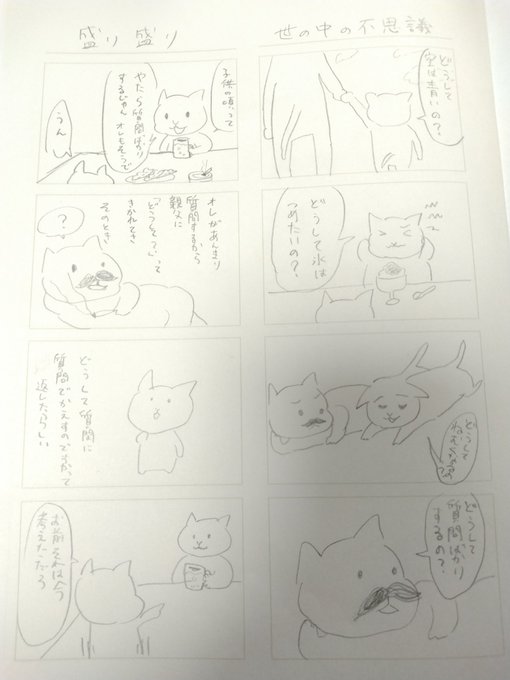 世の中の不思議
どうして
空は青いの?
どうして氷は
つめたいの?
どうして
ねむくなるの?
どうして
質問ばかり
するの?
盛り盛り
子供の頃って
やたら質問ばかり
するじゃん オレもそうで
うん
オレがあんまり
質問するから
親父に
「どうして?」って
きかれてさ
そのとき
?
どうして質問に
質問でかえすのですかって
返したらしい
お前それは今
考えただろ